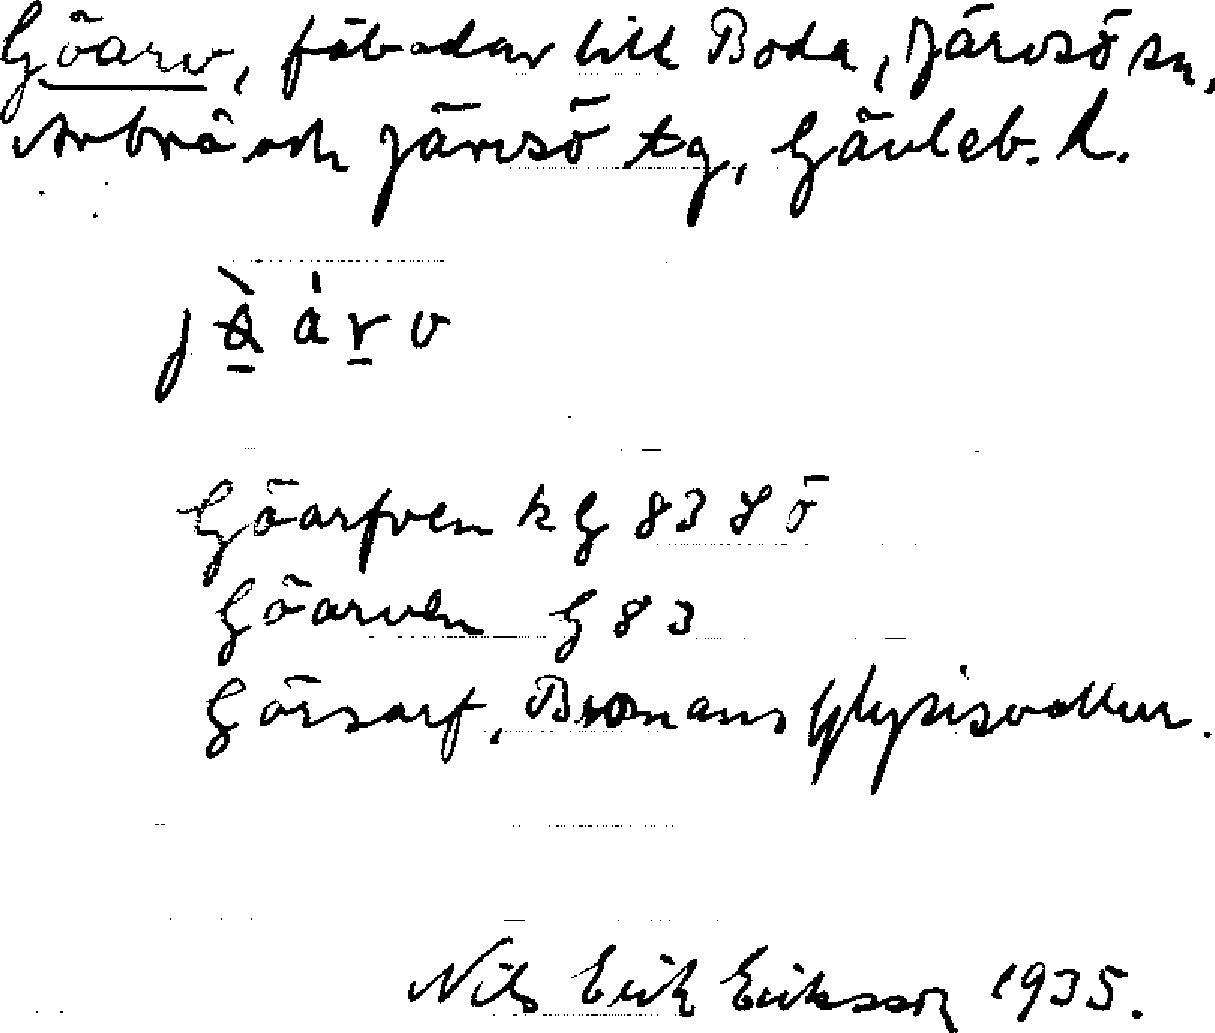 Göarv, fäbodar till Boda, Järvsö sn,
Arbrå och Järvsö tg, Gävleb. l.
Göarfven kG 83 SÖ
Göarven G 83
Görsarf, Bromans Glysisvallur.
Nils Erik Eriksson 1935.